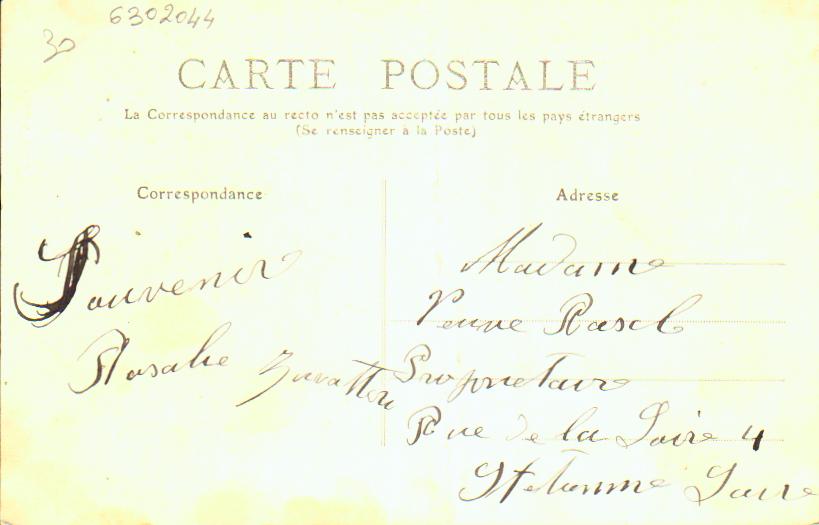 6302044
30
CARTE POSTALE
La Correspondance au recto n'est pas acceptée par tous les pays étrangers
(Se renseigner à la Poste)
Correspondance
Souvenir
Rosalie
Adresse
Madame
Veuve
Propriétaire
Rue de la Loire 4
St Etienne Loire